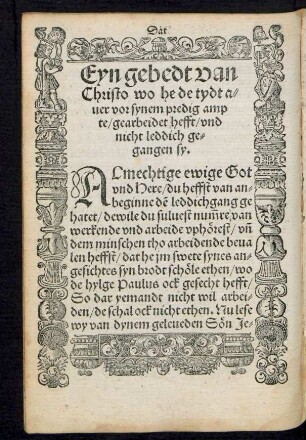 Dat
Eyn gebedt van
Christo wo he de tydt a/
uer vor synem predig amp
te/gearbeidet hefft/vnd
nicht leddich ge/
gangen sy.
ALmechtige ewige Got
vnd Here/du heffst van an/
beginne dẽ leddichgang ge
hatet/dewile du suluest num̃er van
werckende vnd arbeide vphörest/ vñ
dem minschen tho arbeidende beua/
len heffst/dat he ym swete synes an/
gesichtes syn brodt schöle ethen/wo
de hylge Paulus ock gesecht hefft/
So dar yemandt nicht wil arbei/
den/de schal ock nicht ethen. Nu lese
wy van dynem geleueden Sön Je/